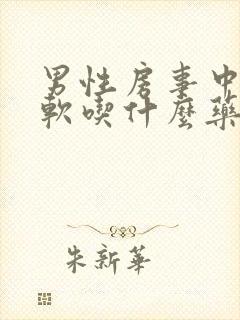 男性房事中
軟喫什麼藥
朱新華